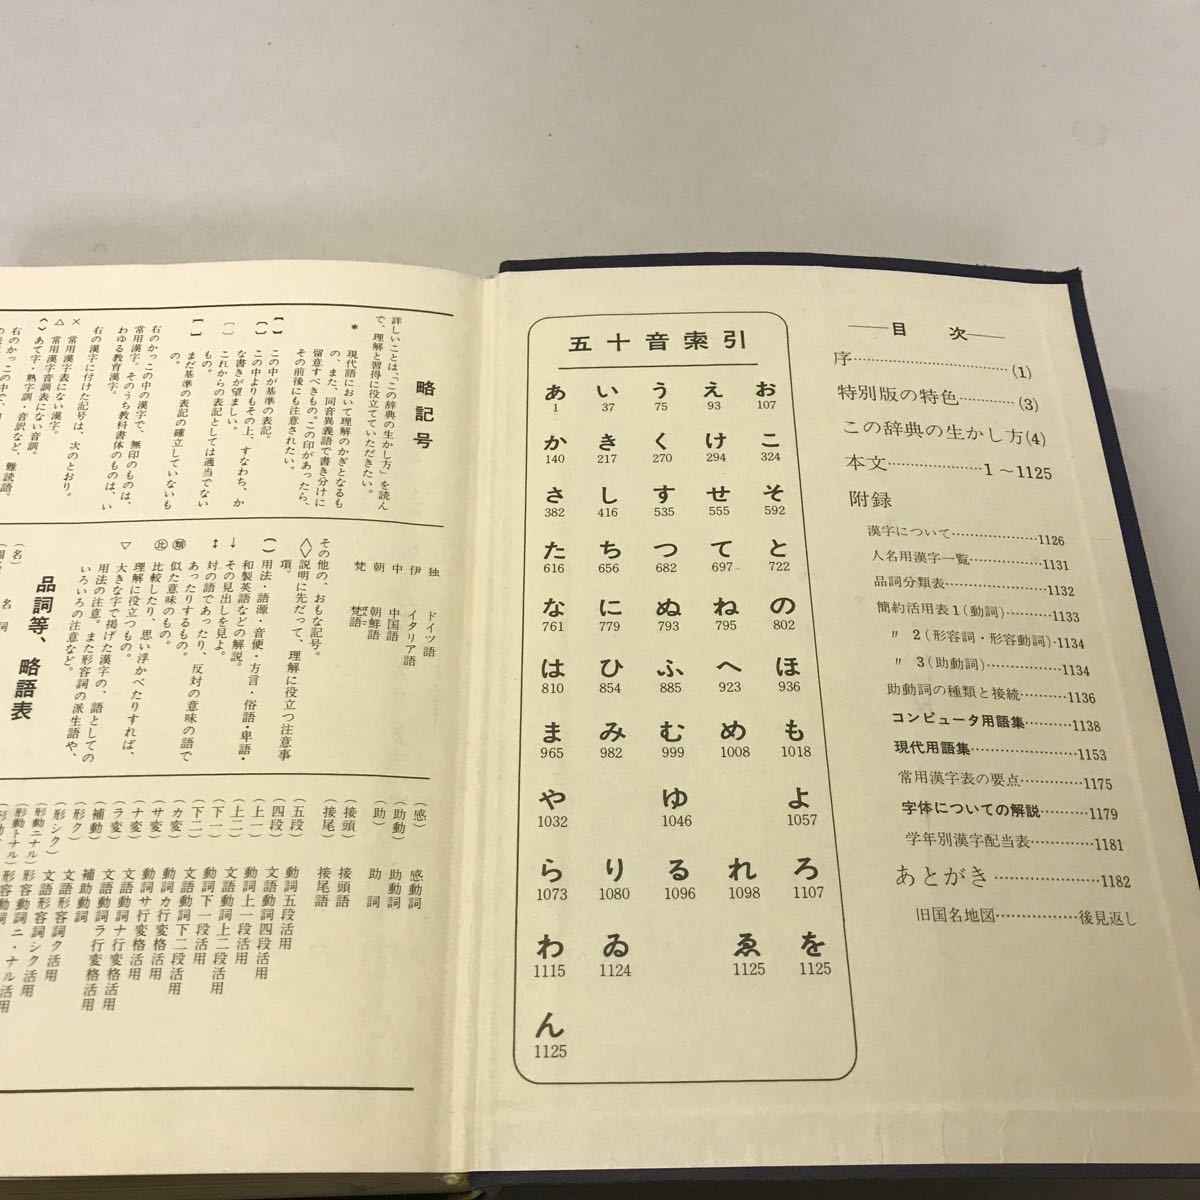 目 次
序……(1)
特別版の特色……(3)
この辞典の生かし方(4)
本文……1〜1125
附録
漢字について……1126
人名用漢字一覧……1131
品詞分類表……1132
簡約活用表1(動詞)……1133
〃 2(形容詞・形容動詞)・1134
〃 3(助動詞)……1134
助動詞の種類と接続……1136
コンピュータ用語集……1138
現代用語集……1153
常用漢字表の要点……1175
字体についての解説……1179
学年別漢字配当表……1181
あとがき……1182
旧国名地図……後見返し
五十音索引
あ い う え お
1 37 75 93 107
か き く け こ
140 217 270 294 324
さ し す せ そ
382 416 535 555 592
た ち つ て と
616 656 682 697 722
な に ぬ ね の
761 779 793 795 802
は ひ ふ へ ほ
810 854 885 923 936
ま み む め も
965 982 999 1008 1018
や ゆ よ
1032 1046 1057
ら り る れ ろ
1073 1080 1096 1098 1107
わ ゐ ゑ を
1115 1124 1125 1125
ん
1125
略記号
詳しいことは、「この辞典の生かし方」を読ん
で、理解と習得に役立てていただきたい。
* 現代語において理解のかぎとなるも
の、また、同音異義語で書き分けに
留意すべきもの。この印があったら、
その前後にも注意されたい。
【】 この中が基準の表記。
〔〕 この中よりもその上、すなわち、か
な書きが望ましい。
これからの表記としては適当でない
もの。
まだ基準の表記の確立していないも
の。
右のかっこの中の漢字で、無印のものは、
常用漢字、そのうち教科書体のものは、い
わゆる教育漢字。
右の漢字に付けた記号は、次のとおり。
× 常用漢字表にない漢字。
△ 常用漢字音調表にない音調。
あて字・熟字訓・音訳など、難読語。
独 ドイツ語
伊 イタリア語
中 中国語
朝 朝鮮語
梵 梵語
その他の、おもな記号。
説明に先だって、理解に役立つ注意事
項。
() 用法・語源・音便・方言・俗語・卑語・
和製英語などの解説。
↓ その見出しを見よ。
↕ 対の語であったり、反対の意味の語で
あったりするもの。
類 似た意味のもの。
比 比較したり、思い浮かべたりすれば、
理解に役立つもの。
▽ 大きな字で掲げた漢字の、語としての
用法の注意。また形容詞の派生語や、
いろいろの注意など。
品詞等、略語表
(名) 名 詞
(感) 感動詞
(助動) 助動詞
(助) 助 詞
(接頭) 接頭語
(接尾) 接尾語
(五段) 動詞五段活用
(四段) 文語動詞四段活用
(上一) 動詞上一段活用
(上二) 文語動詞上二段活用
(下一) 動詞下一段活用
(下二) 文語動詞下二段活用
(カ変) 動詞カ行変格活用
(サ変) 動詞サ行変格活用
(ナ変) 文語動詞ナ行変格活用
(ラ変) 文語動詞ラ行変格活用
(補動) 補助動詞
(形ク) 文語形容詞ク活用
(形シク) 文語形容詞シク活用
(形動ニナル) 形容動詞ニ・ナル活用